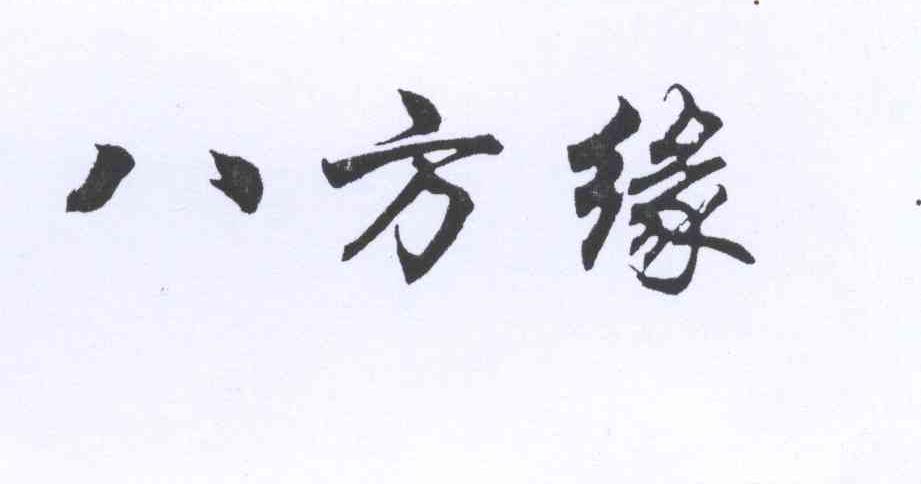 八方缘